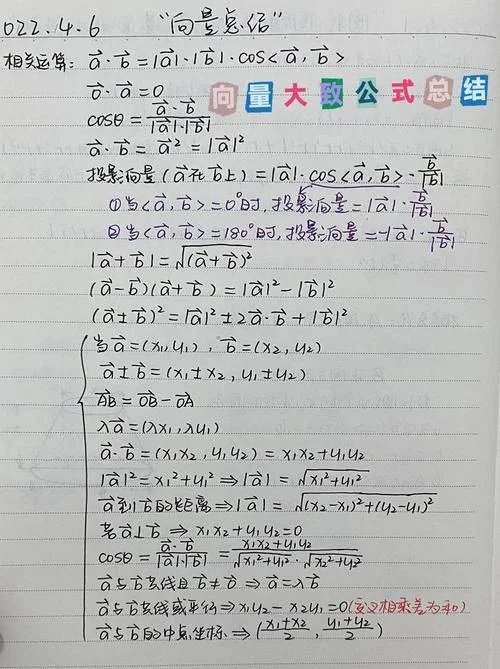 022.4.6 "向量总结"
相关运算: a⃗·b⃗=|a⃗|·|b⃗|·cos<a⃗,b⃗>
0⃗·a⃗=0
向量大致公式总结
cosθ=a⃗·b⃗/|a⃗|·|b⃗|
a⃗·b⃗=a⃗²=|a⃗|²
投影向量(a⃗在b⃗上)=|a⃗|·cos<a⃗,b⃗>·b⃗/|b⃗|
①当<a⃗,b⃗>=0°时,投影向量=|a⃗|·b⃗/|b⃗|
②当<a⃗,b⃗>=180°时,投影向量=-|a⃗|·b⃗/|b⃗|
|a⃗+b⃗|=√(a⃗+b⃗)²
(a⃗-b⃗)(a⃗+b⃗)=|a⃗|²-|b⃗|²
(a⃗±b⃗)²=|a⃗|²±2a⃗·b⃗+|b⃗|²
当a⃗=(x₁,y₁),b⃗=(x₂,y₂)
a⃗±b⃗=(x₁±x₂,y₁±y₂)
AB⃗=OB⃗-OA⃗
λa⃗=(λx₁,λy₁)
a⃗·b⃗=(x₁x₂,y₁y₂)=x₁x₂+y₁y₂
|a⃗|²=x₁²+y₁²⇒|a⃗|=√x₁²+y₁²
a⃗到b⃗的距离⇒|a⃗|=√(x₂-x₁)²+(y₂-y₁)²
若a⃗⊥b⃗⇒x₁x₂+y₁y₂=0
cosθ=a⃗·b⃗/|a⃗|·|b⃗|=x₁x₂+y₁y₂/√x₁²+y₁²·√x₂²+y₂²
a⃗与b⃗共线且b⃗≠0⃗⇒a⃗=λb⃗
a⃗与b⃗共线或平行⇒x₁y₂-x₂y₁=0(交叉相乘差为0)
a⃗与b⃗的中点坐标⇒(x₁+x₂/2,y₁+y₂/2)